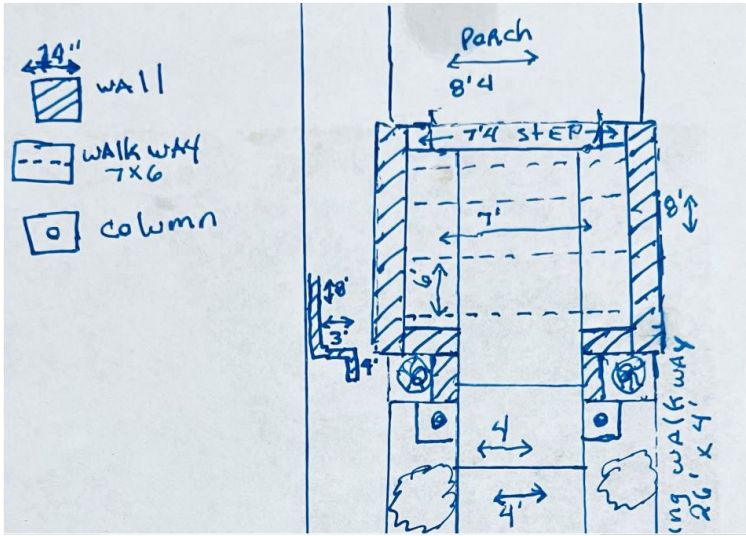 14"
wall
walkway
7x6
column
Porch
8'4
7'4 STEP
7'
6'
8'
8'
3'
4'
4
4'
ing walkway
26' x 4'